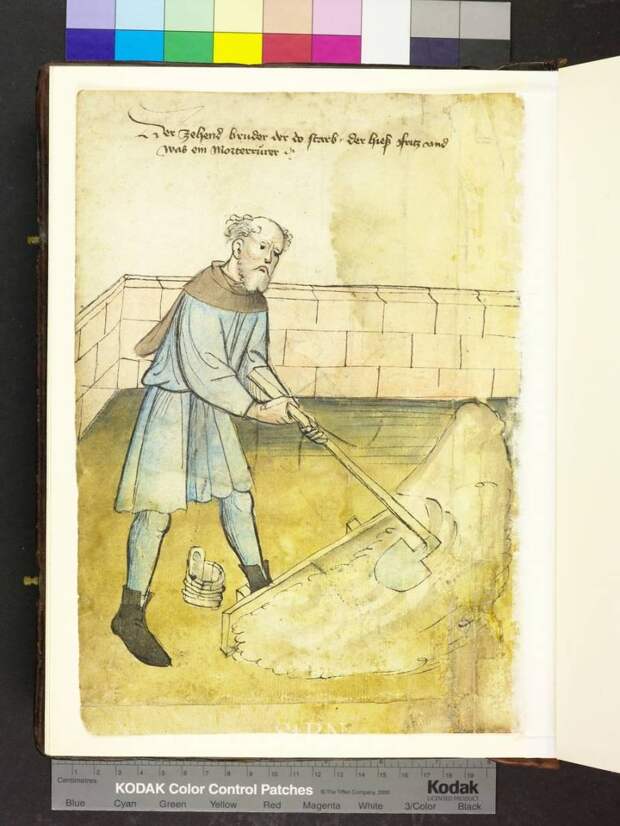 Der Zehend bruder der do starb · der hieß Fritz und
was ein Morterrürer
Centimetres
1 2 3 4 5 6 7 8 9 10 11 12 13 14 15 16 17 18 19
KODAK Color Control Patches
© The Tiffen Company, 2000
Kodak
LICENSED PRODUCT
Blue Cyan Green Yellow Red Magenta White 3/Color Black